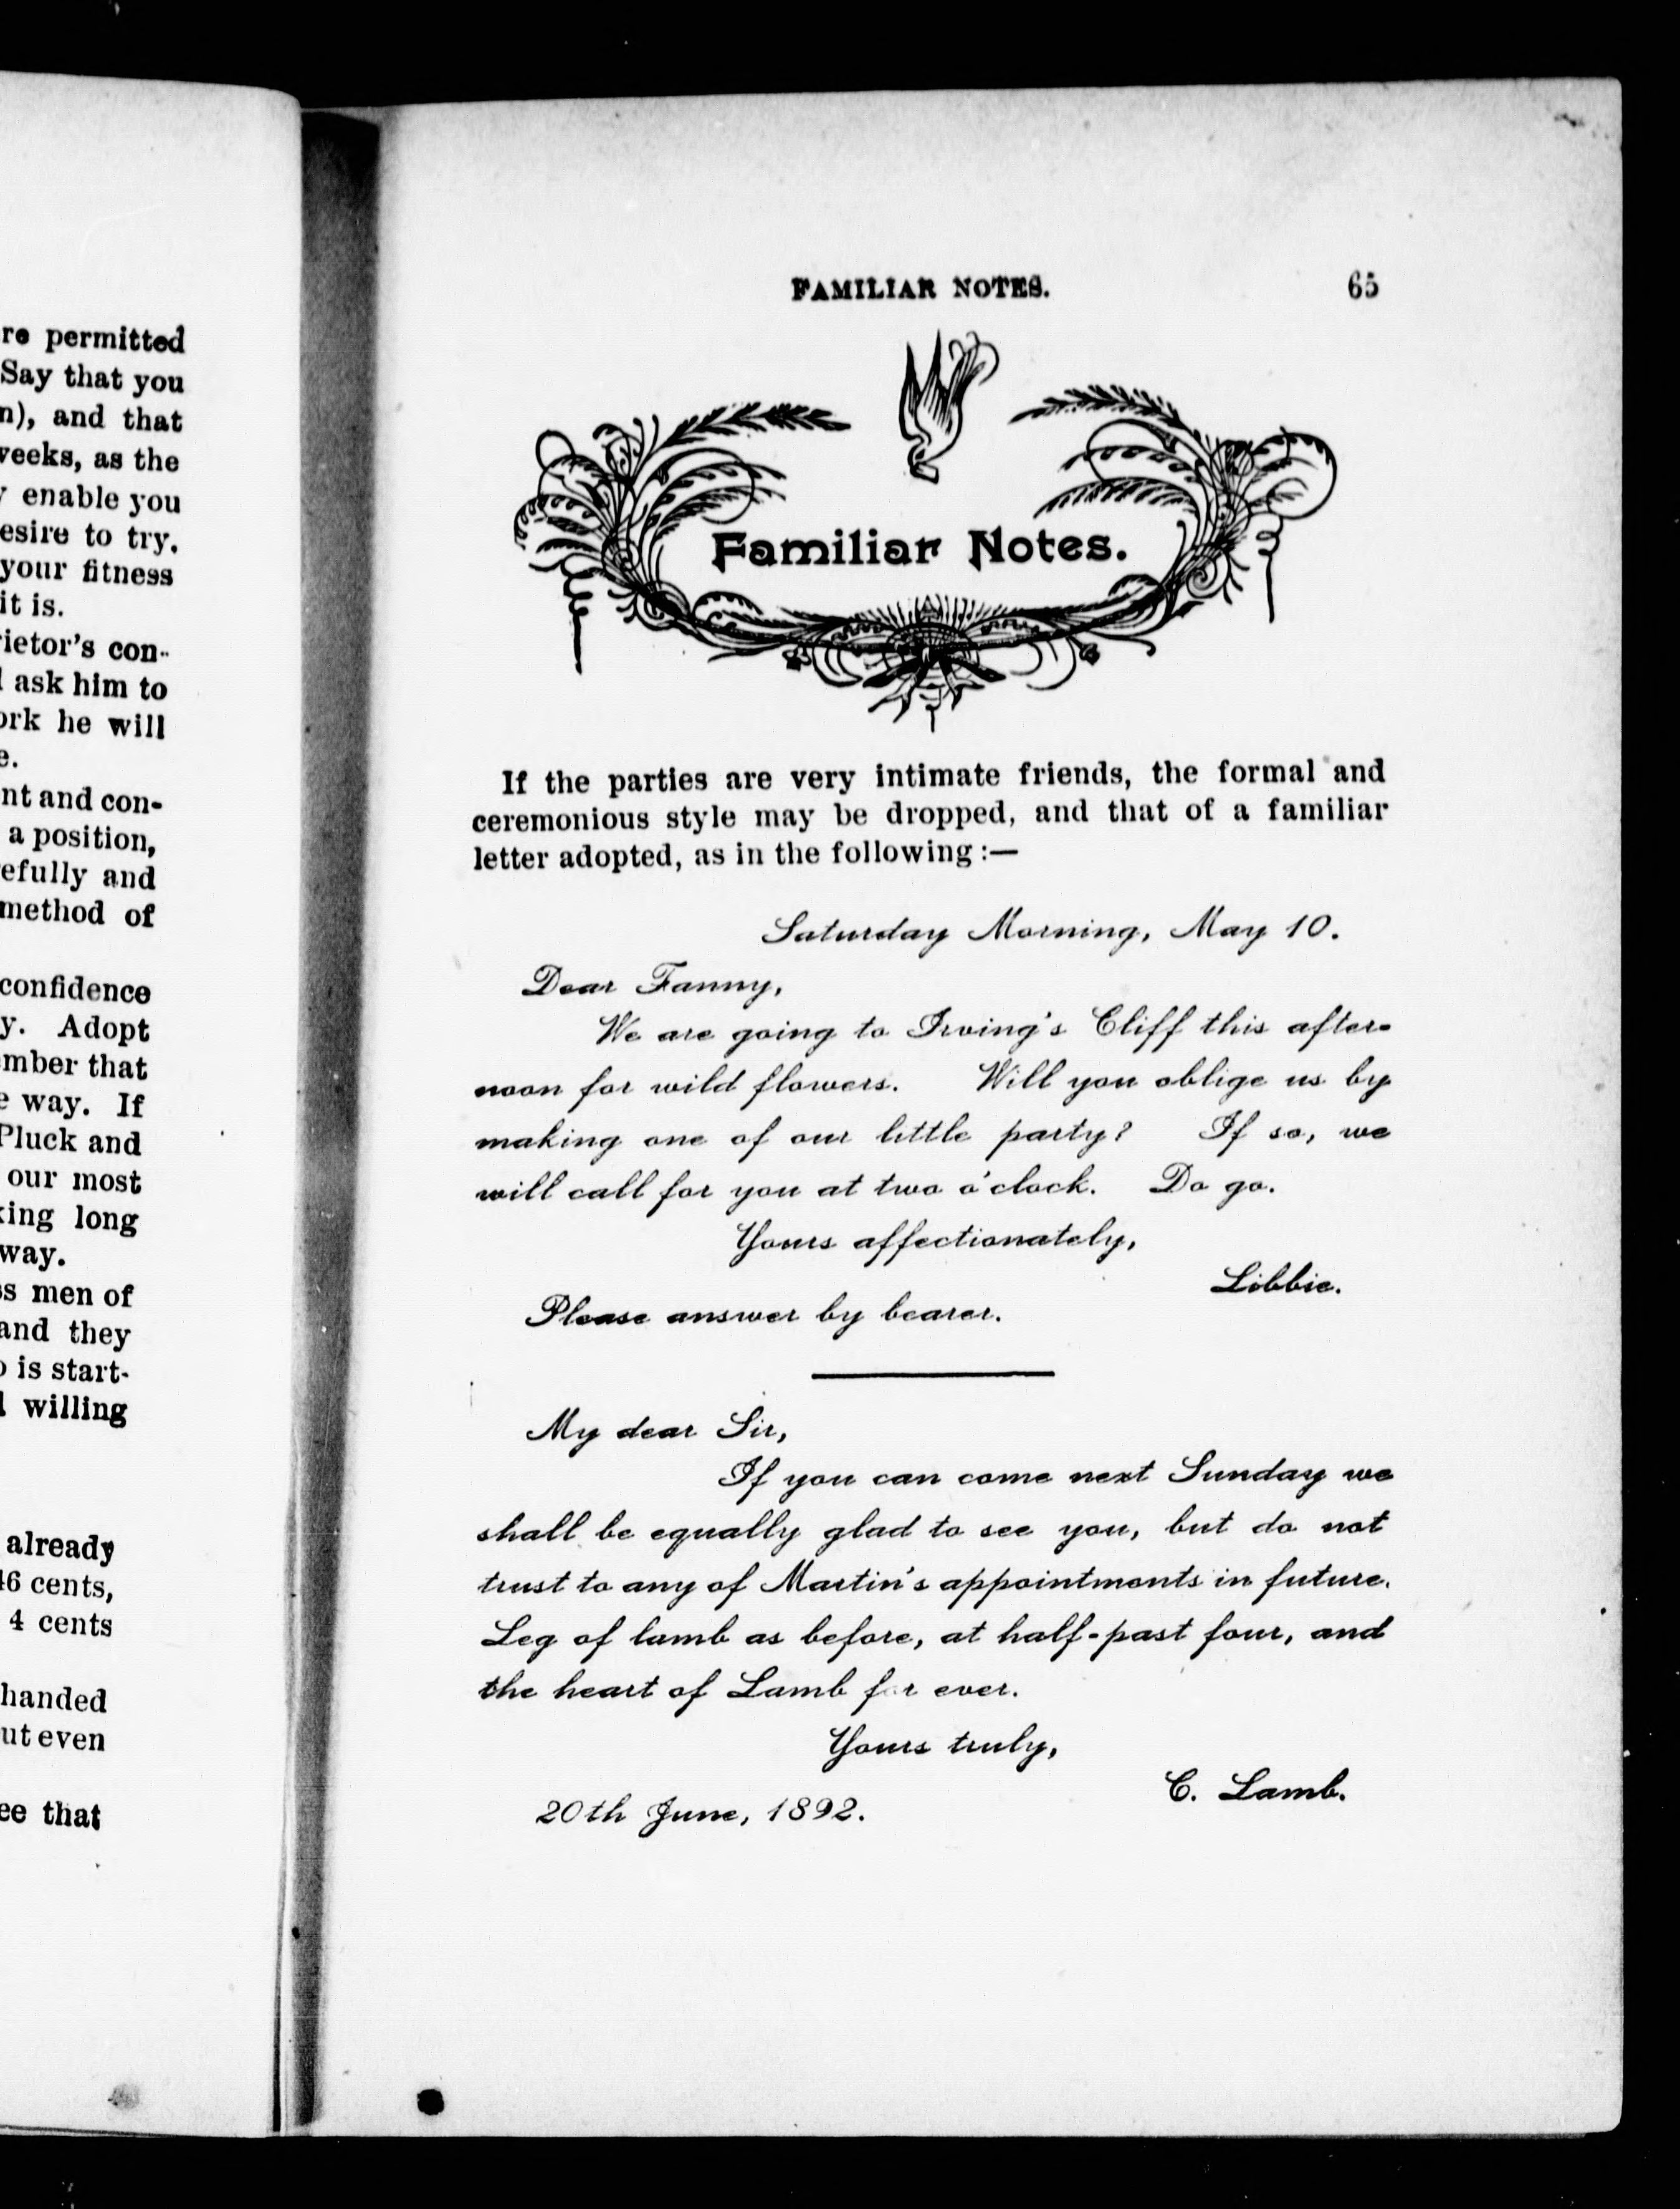 re permitted
Say that you
n), and that
weeks, as the
enable you
esire to try.
your fitness
it is.
rietor's con-
ask him to
ork he will
e.
nt and con-
a position,
efully and
method of
confidence
y. Adopt
ember that
e way. If
Pluck and
our most
king long
way.
ss men of
and they
o is start-
willing
already
46 cents,
4 cents
handed
ut even
ee that
FAMILIAR NOTES. 65
Familiar Notes.
If the parties are very intimate friends, the formal and
ceremonious style may be dropped, and that of a familiar
letter adopted, as in the following:—
Saturday Morning, May 10.
Dear Fanny,
We are going to Irving's Cliff this after-
noon for wild flowers. Will you oblige us by
making one of our little party? If so, we
will call for you at two o'clock. Do go.
Yours affectionately,
Libbie.
Please answer by bearer.
My dear Sir,
If you can come next Sunday we
shall be equally glad to see you, but do not
trust to any of Martin's appointments in future.
Leg of lamb as before, at half-past four, and
the heart of Lamb for ever.
Yours truly,
C. Lamb.
20th June, 1892.